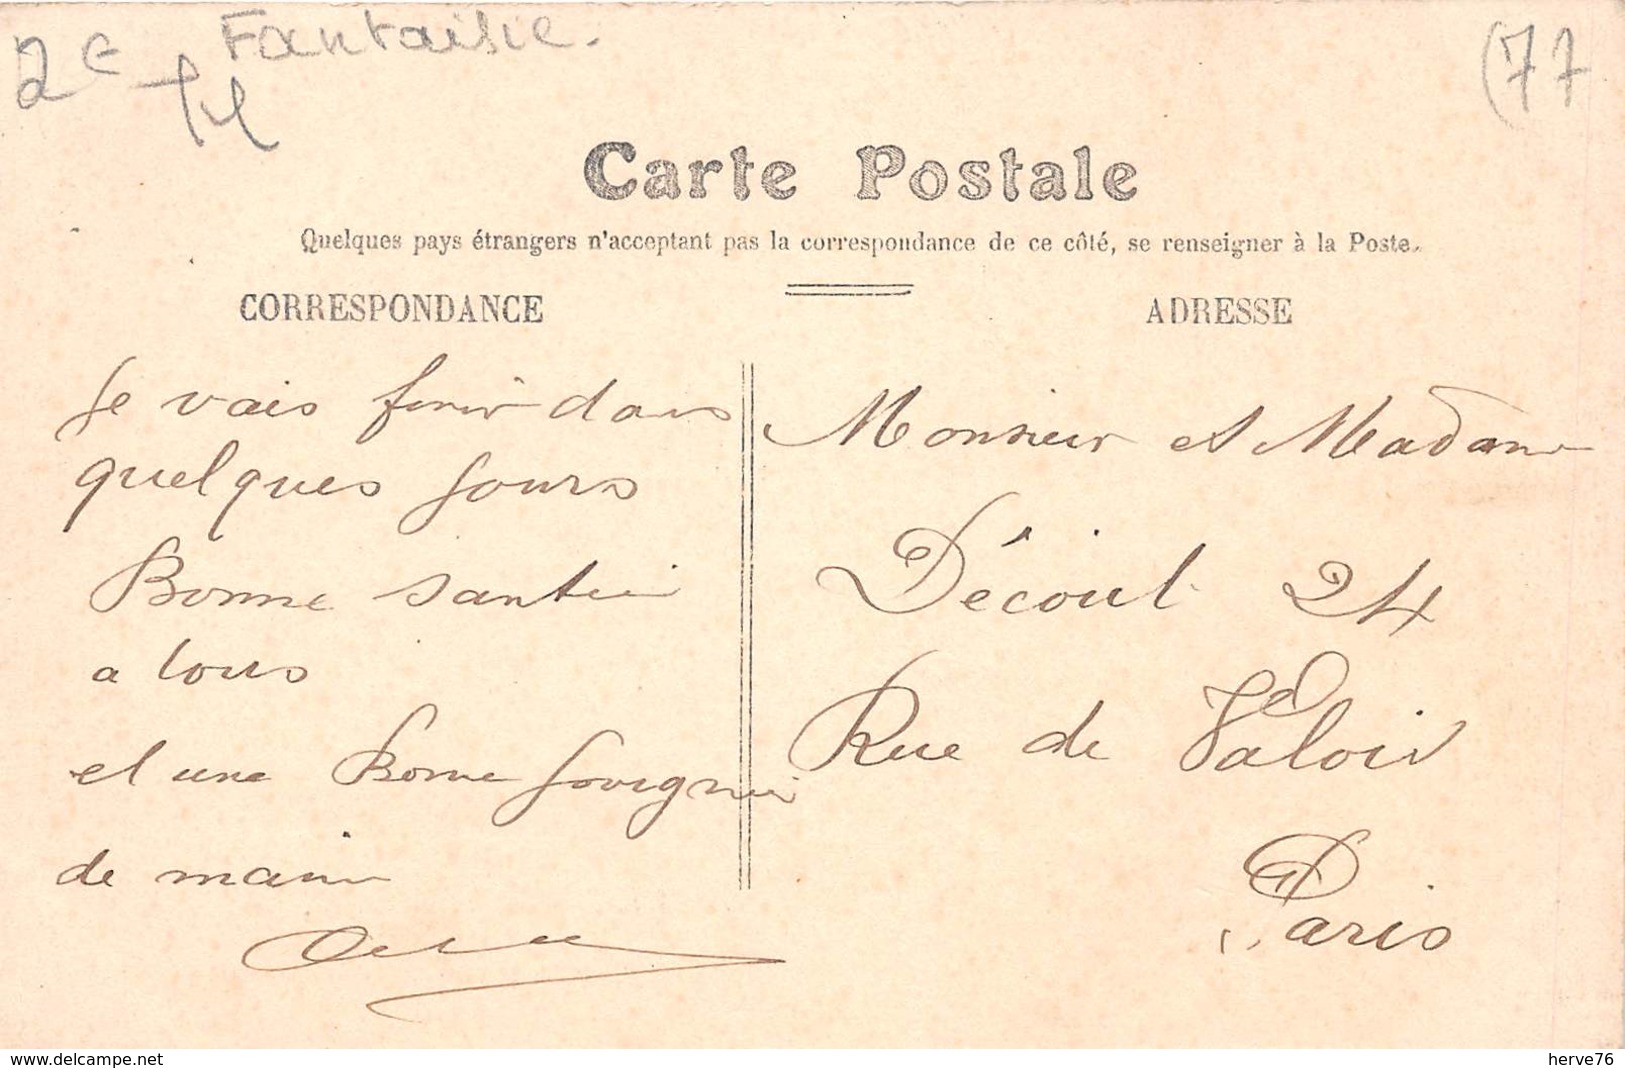 2e Fantaisie.
(77
Carte Postale
Quelques pays étrangers n'acceptant pas la correspondance de ce côté, se renseigner à la Poste.
CORRESPONDANCE
Je vais finir dans
quelques jours
Bonne
a tous
et une Bonne
de main
ADRESSE
Monsieur et Madame
Décout 24
Rue de Valois
Paris
www.delcampe.net
herve76